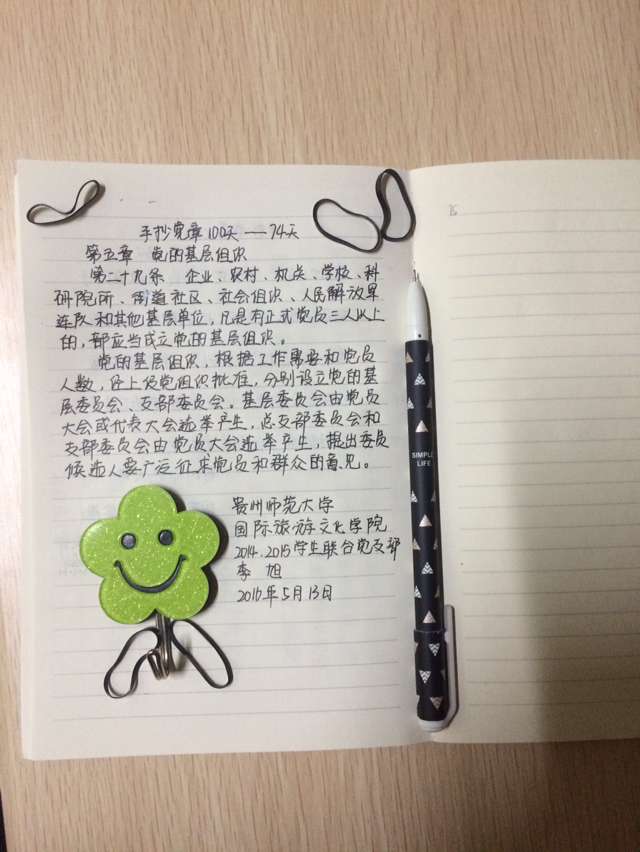 手抄党章100天——74天
第五章 党的基层组织
第二十九条 企业、农村、机关、学校、科
研院所、街道社区、社会组织、人民解放军
连队和其他基层单位,凡是有正式党员三人以上
的,都应当成立党的基层组织。
党的基层组织,根据工作需要和党员
人数,经上级党组织批准,分别设立党的基
层委员会、支部委员会。基层委员会由党员
大会或代表大会选举产生,总支部委员会和
支部委员会由党员大会选举产生,提出委员
候选人要广泛征求党员和群众的意见。
贵州师范大学
国际旅游文化学院
2014.2015学生联合党支部
李 旭
2016年5月13日
SIMPLE
LIFE